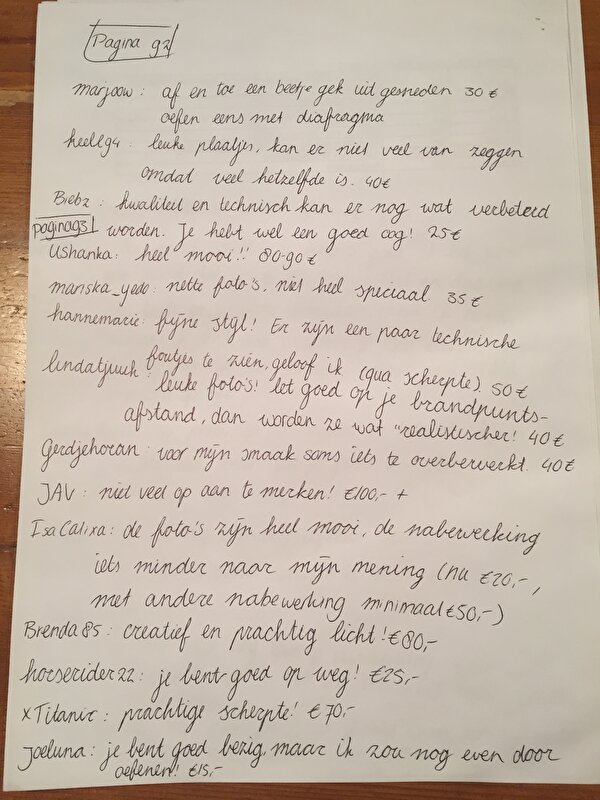 Pagina 92
marjoow: af en toe een beetje gek uit gesneden 30 €
oefen eens met diafragma
heell94: leuke plaatjes, kan er niet veel van zeggen
omdat veel hetzelfde is. 40€
Bieb2: kwaliteit en technisch kan er nog wat verbeterd
pagina93 worden. Je hebt wel een goed oog! 25€
Ushanka: heel mooi!! 80-90 €
mariska_yedo: nette foto's, niet heel speciaal. 35 €
hannemarie: fijne stijl! Er zijn een paar technische
foutjes te zien, geloof ik (qua scherpte) 50 €
lindatjuuh: leuke foto's! let goed op je brandpunts-
afstand, dan worden ze wat "realistischer! 40€
Gerdjehoran: voor mijn smaak soms iets te overbewerkt. 40€
JAV: niet veel op aan te merken! €100,- +
IsaCalixa: de foto's zijn heel mooi, de nabewerking
iets minder naar mijn mening (nu €20,-,
met andere nabewerking minimaal €50,-)
Brenda85: creatief en prachtig licht! €80,-
horserider22: je bent goed op weg! €25,-
xTitanic: prachtige scherpte! €70,-
Joeluna: je bent goed bezig, maar ik zou nog even door
oefenen! €15,-